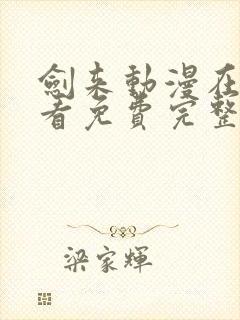 劍来動漫在
看免費完整
梁家輝